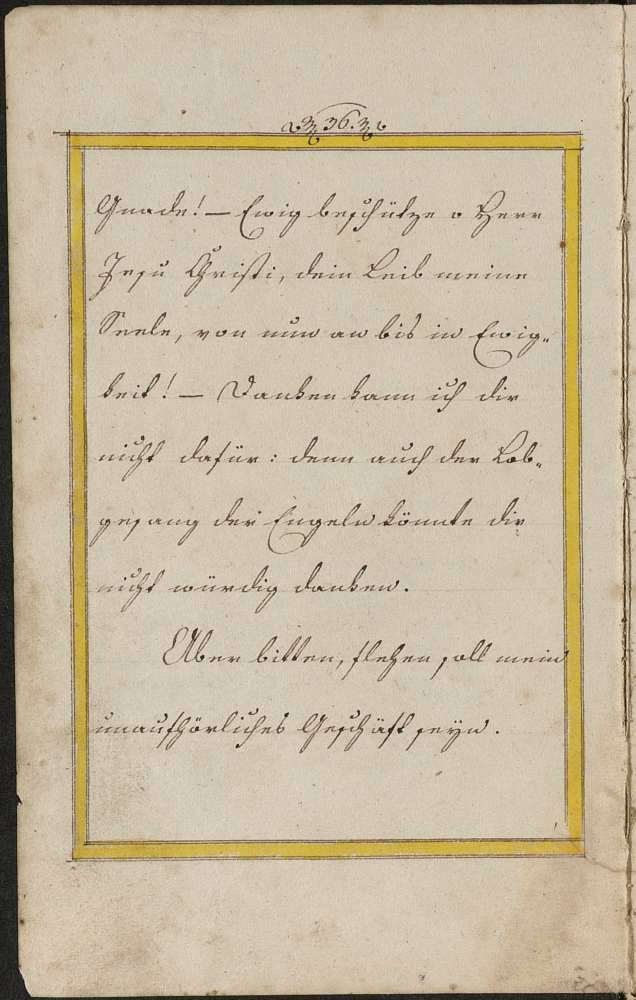 36.
Gnade! – Ewig beschütze o Herr
Jesu Christi, dein Leib meine
Seele, von nun an bis in Ewig-
keit! – Danken kann ich dir
nicht dafür: denn auch der Lob-
gesang der Engeln könnte dir
nicht würdig danken.
Aber bitten, flehen soll mein
unaufhörliches Geschäft seyn.